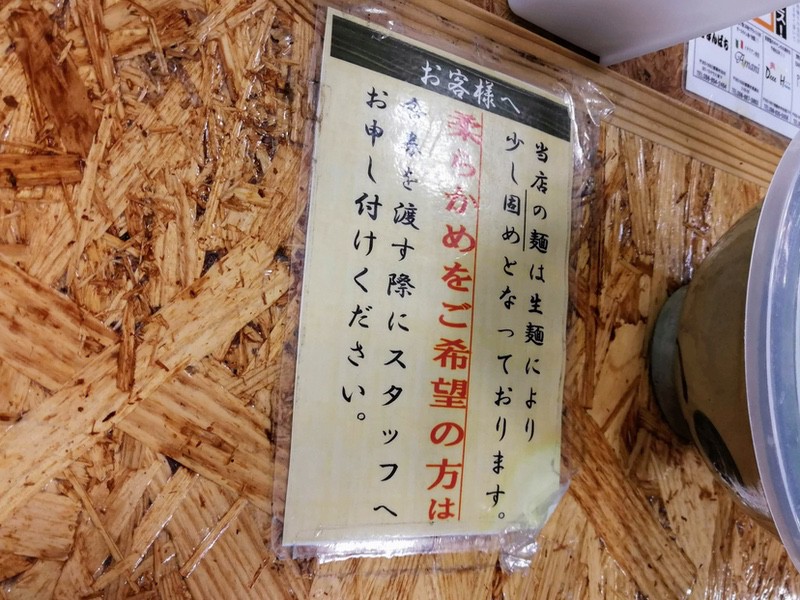 お客様へ
当店の麺は生麺により
少し固めとなっております。
柔らかめをご希望の方は
食券を渡す際にスタッフへ
お申し付けください。
Amani